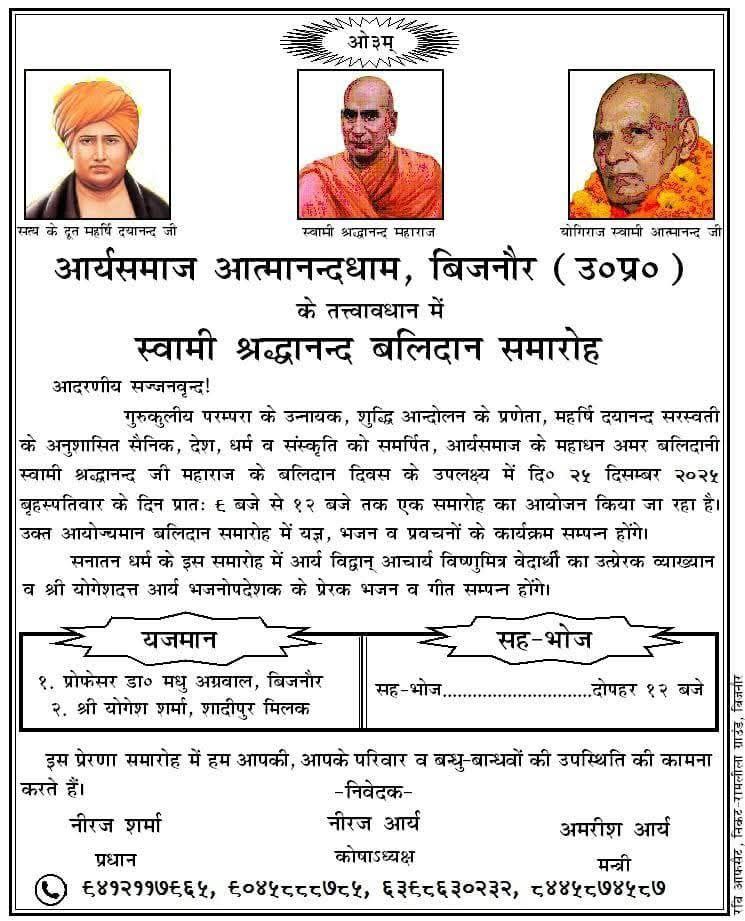 ओ३म्
सत्य के दूत महर्षि दयानन्द जी
स्वामी श्रद्धानन्द महाराज
योगिराज स्वामी आत्मानन्द जी
आर्यसमाज आत्मानन्दधाम, बिजनौर ( उ०प्र० )
के तत्त्वावधान में
स्वामी श्रद्धानन्द बलिदान समारोह
आदरणीय सज्जनवृन्द!
गुरुकुलीय परम्परा के उन्नायक, शुद्धि आन्दोलन के प्रणेता, महर्षि दयानन्द सरस्वती
के अनुशासित सैनिक, देश, धर्म व संस्कृति को समर्पित, आर्यसमाज के महाधन अमर बलिदानी
स्वामी श्रद्धानन्द जी महाराज के बलिदान दिवस के उपलक्ष्य में दि० २५ दिसम्बर २०२५
बृहस्पतिवार के दिन प्रातः ९ बजे से १२ बजे तक एक समारोह का आयोजन किया जा रहा है।
उक्त आयोज्यमान बलिदान समारोह में यज्ञ, भजन व प्रवचनों के कार्यक्रम सम्पन्न होंगे।
सनातन धर्म के इस समारोह में आर्य विद्वान् आचार्य विष्णुमित्र वेदार्थी का उत्प्रेरक व्याख्यान
व श्री योगेशदत्त आर्य भजनोपदेशक के प्रेरक भजन व गीत सम्पन्न होंगे।
यजमान
१. प्रोफेसर डा० मधु अग्रवाल, बिजनौर
२. श्री योगेश शर्मा, शादीपुर मिलक
सह-भोज
सह-भोज..............................दोपहर १२ बजे
इस प्रेरणा समारोह में हम आपकी, आपके परिवार व बन्धु-बान्धवों की उपस्थिति की कामना
करते हैं।
-निवेदक-
नीरज शर्मा
प्रधान
नीरज आर्य
कोषाऽध्यक्ष
अमरीश आर्य
मन्त्री
९४१२११७९६५, ९०४५८८८७८५, ६३९८६३०२३२, ८४४५८७४५८७
रवि आफसैट, निकट-रामलीला ग्राउंड, बिजनौर